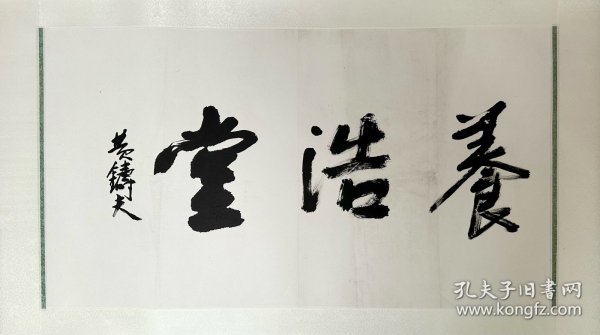 養浩堂
黄鑄夫
孔夫子旧書网
www.kongfz.com